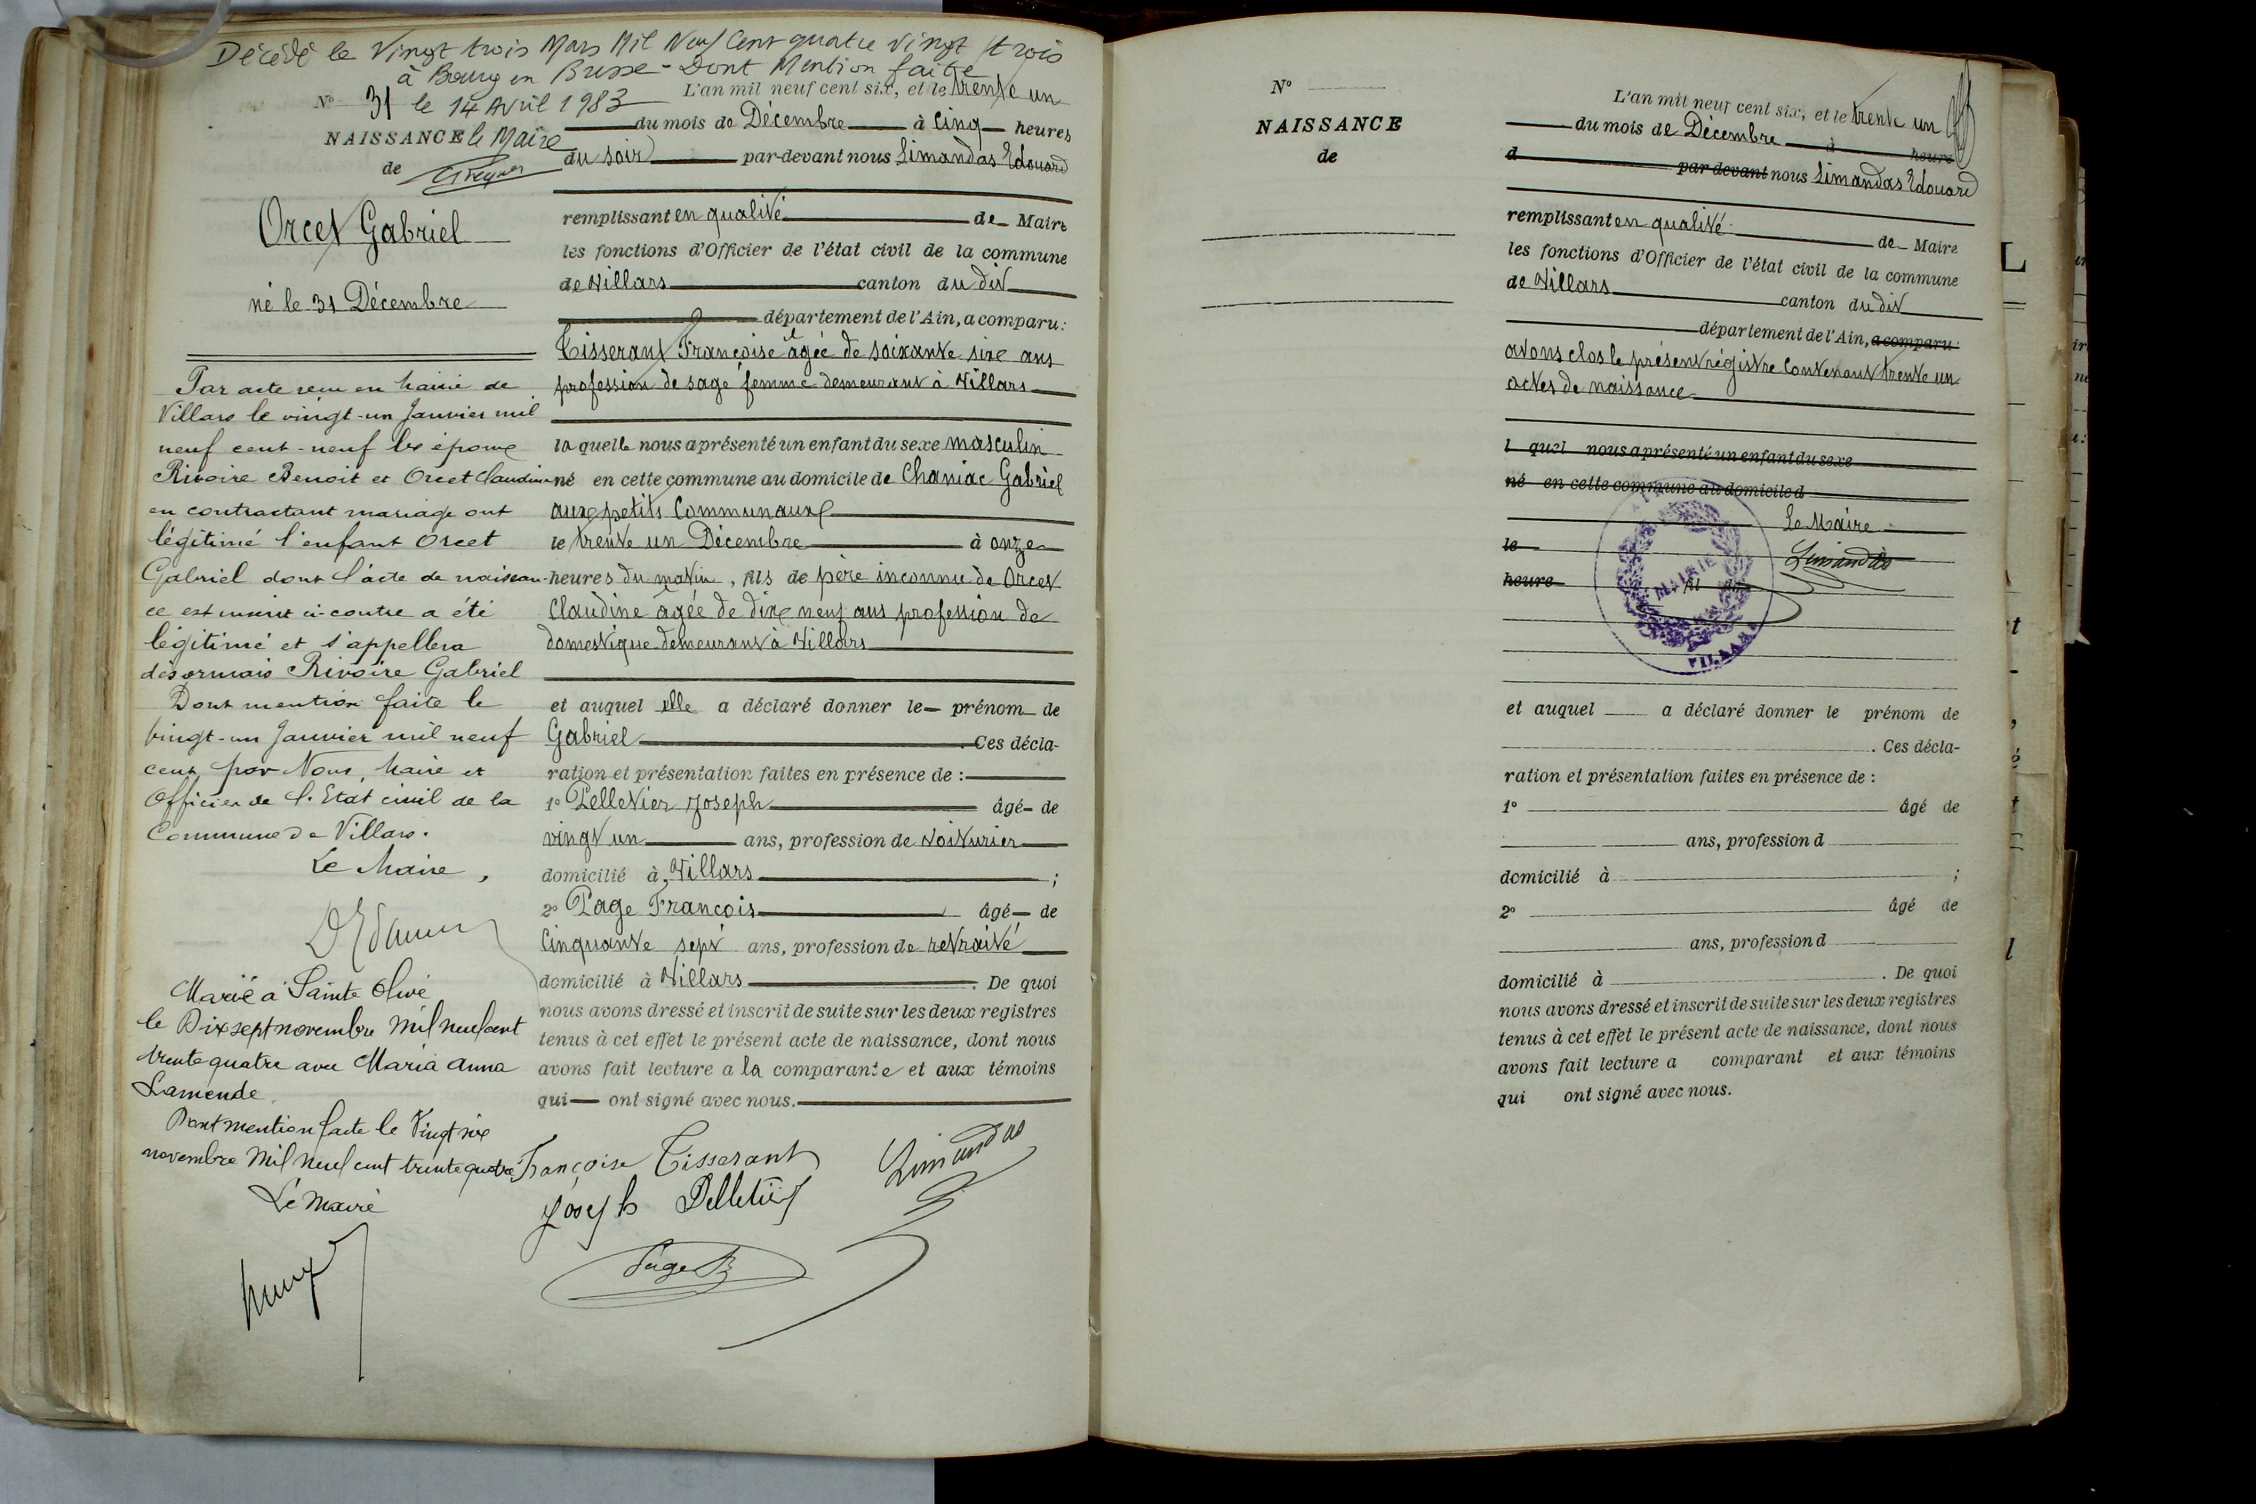 Décédé le Vingt trois Mars Mil Neuf Cent quatre vingt trois
à Bourg en Bresse - Dont Mention faite
le 14 Avril 1983
le Maire
N° 31
NAISSANCE
de
Orcet Gabriel
né le 31 Décembre
Par acte reçu en Mairie de
Villars le vingt-un Janvier mil
neuf cent-neuf les époux
Rivoire Benoit et Orcet Claudine
en contractant mariage ont
légitimé l'enfant Orcet
Gabriel dont l'acte de naissan-
ce est inscrit ci-contre a été
légitimé et s'appellera
désormais Rivoire Gabriel
Dont mention faite le
vingt-un Janvier mil neuf
cent par Nous, Maire et
Officier de l'Etat civil de la
Commune de Villars.
Le Maire,
Marié à Sainte Olive
le Dix sept novembre Mil neuf cent
trente quatre avec Maria Anna
Lamende
Dont mention faite le Vingt six
novembre Mil neuf cent trente quatre
Le Maire
L'an mil neuf cent six, et le trente un
du mois de Décembre à cinq heures
du soir par-devant nous Limandas Edouard
remplissant en qualité de Maire
les fonctions d'Officier de l'état civil de la commune
de Villars canton du dit
département de l'Ain, a comparu:
Tisserant Françoise agée de soixante six ans
profession de sage femme demeurant à Villars
la quelle nous a présenté un enfant du sexe masculin
né en cette commune au domicile de Chaniac Gabriel
aux petits Communaux
le trente un Décembre à onze
heures du matin, fils de père inconnu de Orcet
Claudine agée de dix neuf ans profession de
domestique demeurant à Villars
et auquel elle a déclaré donner le prénom de
Gabriel . Ces décla-
ration et présentation faites en présence de :
1° Pelletier Joseph âgé de
vingt un ans, profession de voiturier
domicilié à Villars ;
2° Page François âgé de
cinquante sept ans, profession de retraité
domicilié à Villars . De quoi
nous avons dressé et inscrit de suite sur les deux registres
tenus à cet effet le présent acte de naissance, dont nous
avons fait lecture a la comparante et aux témoins
qui ont signé avec nous.
Françoise Tisserant
Limandas
Joseph Pelletier
Page
N°
NAISSANCE
de
L'an mil neuf cent six, et le trente un
du mois de Décembre à heure
d par devant nous Limandas Edouard
remplissant en qualité de Maire
les fonctions d'Officier de l'état civil de la commune
de Villars canton du dit
département de l'Ain, a comparu:
avons clos le présent régistre contenant trente un
actes de naissance
l quel nous a présenté un enfant du sexe
né en cette commune au domicile d
Le Maire
le
Limandas
heure
MAIRIE
VILLARS
et auquel a déclaré donner le prénom de
. Ces décla-
ration et présentation faites en présence de :
1° âgé de
ans, profession d
domicilié à ;
2° âgé de
ans, profession d
domicilié à . De quoi
nous avons dressé et inscrit de suite sur les deux registres
tenus à cet effet le présent acte de naissance, dont nous
avons fait lecture a comparant et aux témoins
qui ont signé avec nous.